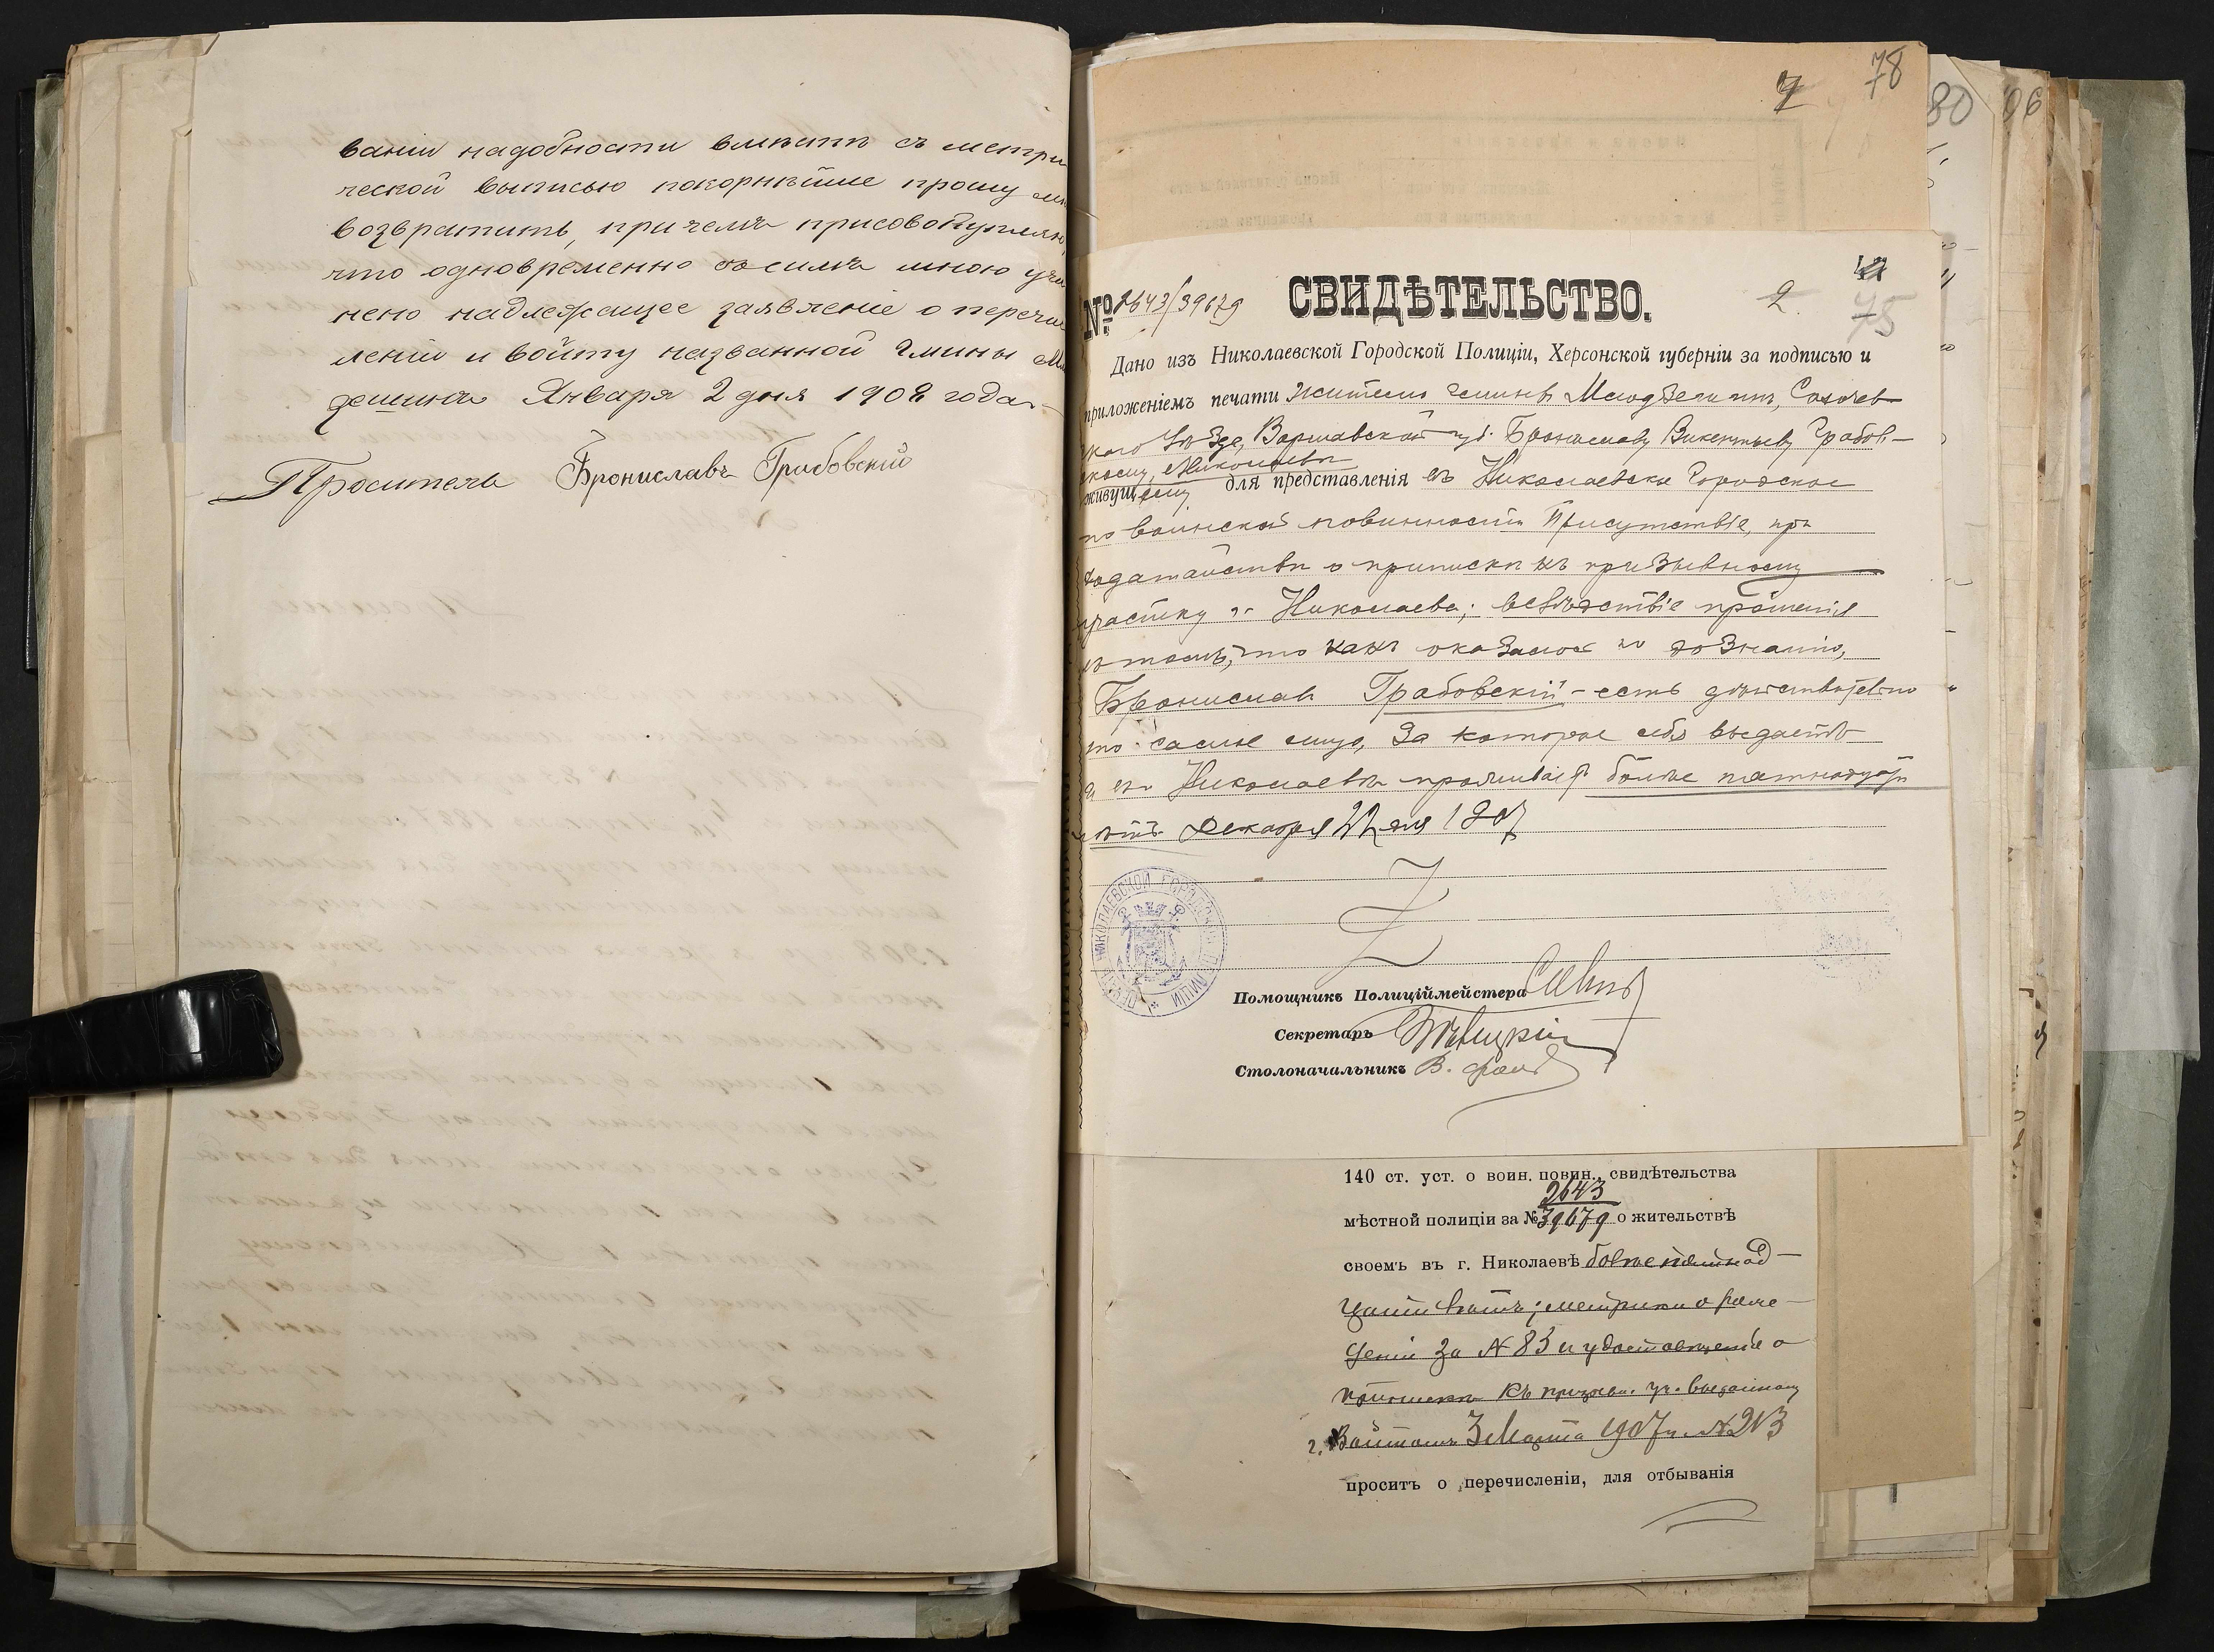 ваніи надобности вмѣстѣ съ метри
ческой выписью покорнѣйше прошу мн
возвратить, при чемъ присовокупляю,
что одновременно съ симъ мною учи
нено надлежащее заявленіе о перечи
леніи и войту названной гмины Мл
дзешинъ Января 2 дня 1908 года
Проситель Брониславъ Грабовскій
7 78
80 06
№ 2643/39679 СВИДѢТЕЛЬСТВО. 2 75
Дано изъ Николаевской Городской Полиціи, Херсонской губерніи за подписью и
приложеніемъ печати жителю гмины Сохачев
скаго уѣзда, Варшавской губ. Брониславу Викентьеву Грабов-
скому, Николаевѣ
живущему для представленія въ Николаевское Городское
по воинской повинности Присутствіе, при
ходатайствѣ о припискѣ къ призывному
участку г. Николаева; вслѣдствіе прошенія
въ томъ, что какъ оказалось по дознанію,
Брониславъ Грабовскій - есть дѣйствительно
то самое лицо, за которое себя выдаетъ
а въ Николаевѣ проживаетъ болѣе пятнадцати
лѣтъ Декабря 22 дня 1907
ПЕЧАТЬ НИКОЛАЕВСКОЙ ГОРОДСКОЙ ПОЛИЦІИ
Помощникъ Полиціймейстера
Секретарь
Столоначальникъ В.
140 ст. уст. о воин. повин., свидѣтельства
2643
мѣстной полиціи за № 39679 о жительствѣ
своемъ въ г. Николаевѣ болѣе пятнад-
цати лѣтъ; метрики о рож-
деніи за № 83 и удостовѣреніе о
припискѣ къ призывн. уч. выданному
г. Войтомъ 3 Марта 1907 г. № 213
проситъ о перечисленіи, для отбыванія